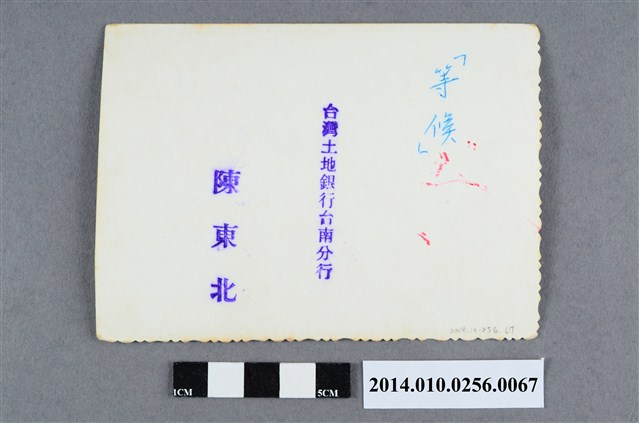 「等候」
台灣土地銀行台南分行
陳東北
2014.10.256.67
1CM
5CM
2014.010.0256.0067